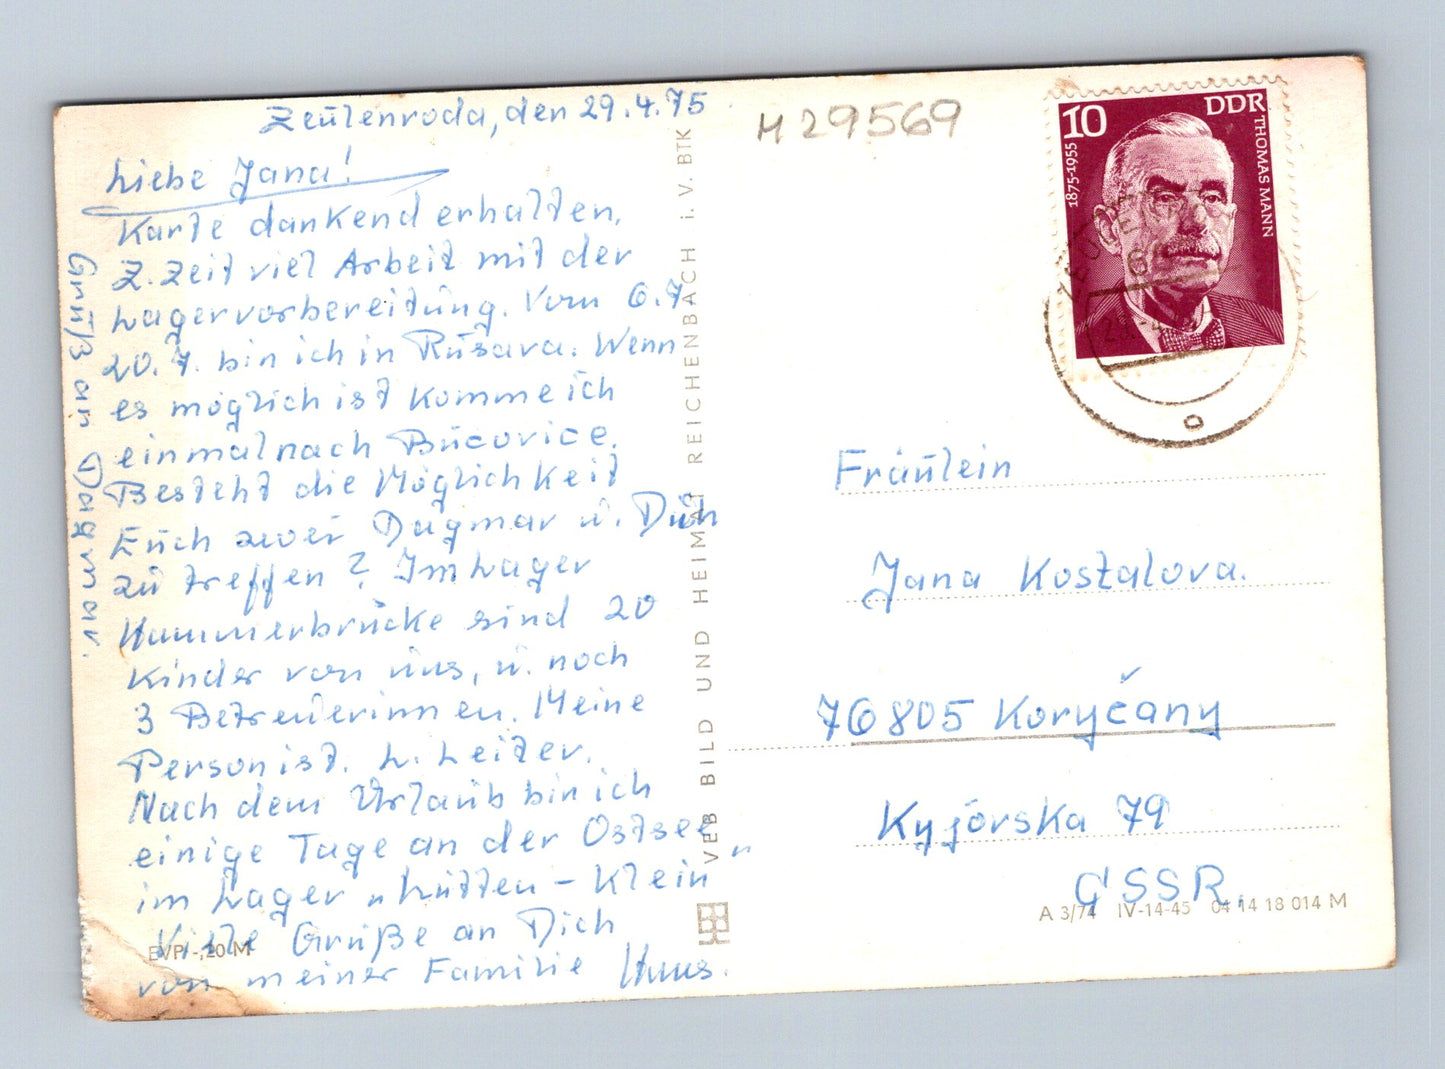 Zeulenroda, den 29.4.75
Liebe Jana!
Karte dankend erhalten,
Z. Zeit viel Arbeit mit der
Lagervorbereitung. Vom 6.7
20.7. bin ich in Rusava. Wenn
es möglich ist komme ich
einmal nach Bucovice.
Besteht die Möglichkeit
Euch zwei Dagmar u. Dich
zu treffen? Im Lager
Hummerbrücke sind 20
Kinder von uns, u. noch
3 Betreuerinnen. Meine
Person ist. L. Leiter.
Nach dem Urlaub bin ich
einige Tage an der Ostsee
im Lager „Lütten-Klein"
Viele Grüße an Dich
von meiner Familie Hans.
Gruß an Dagmar.
EVP -,20 M
VEB BILD UND HEIMAT REICHENBACH i. V. BTK
H 29569
10 DDR
1875-1955
THOMAS MANN
Fräulein
Jana Kostalova.
76805 Koryčany
Kyjórska 79
ČSSR.
A 3/74 IV-14-45 04 14 18 014 M